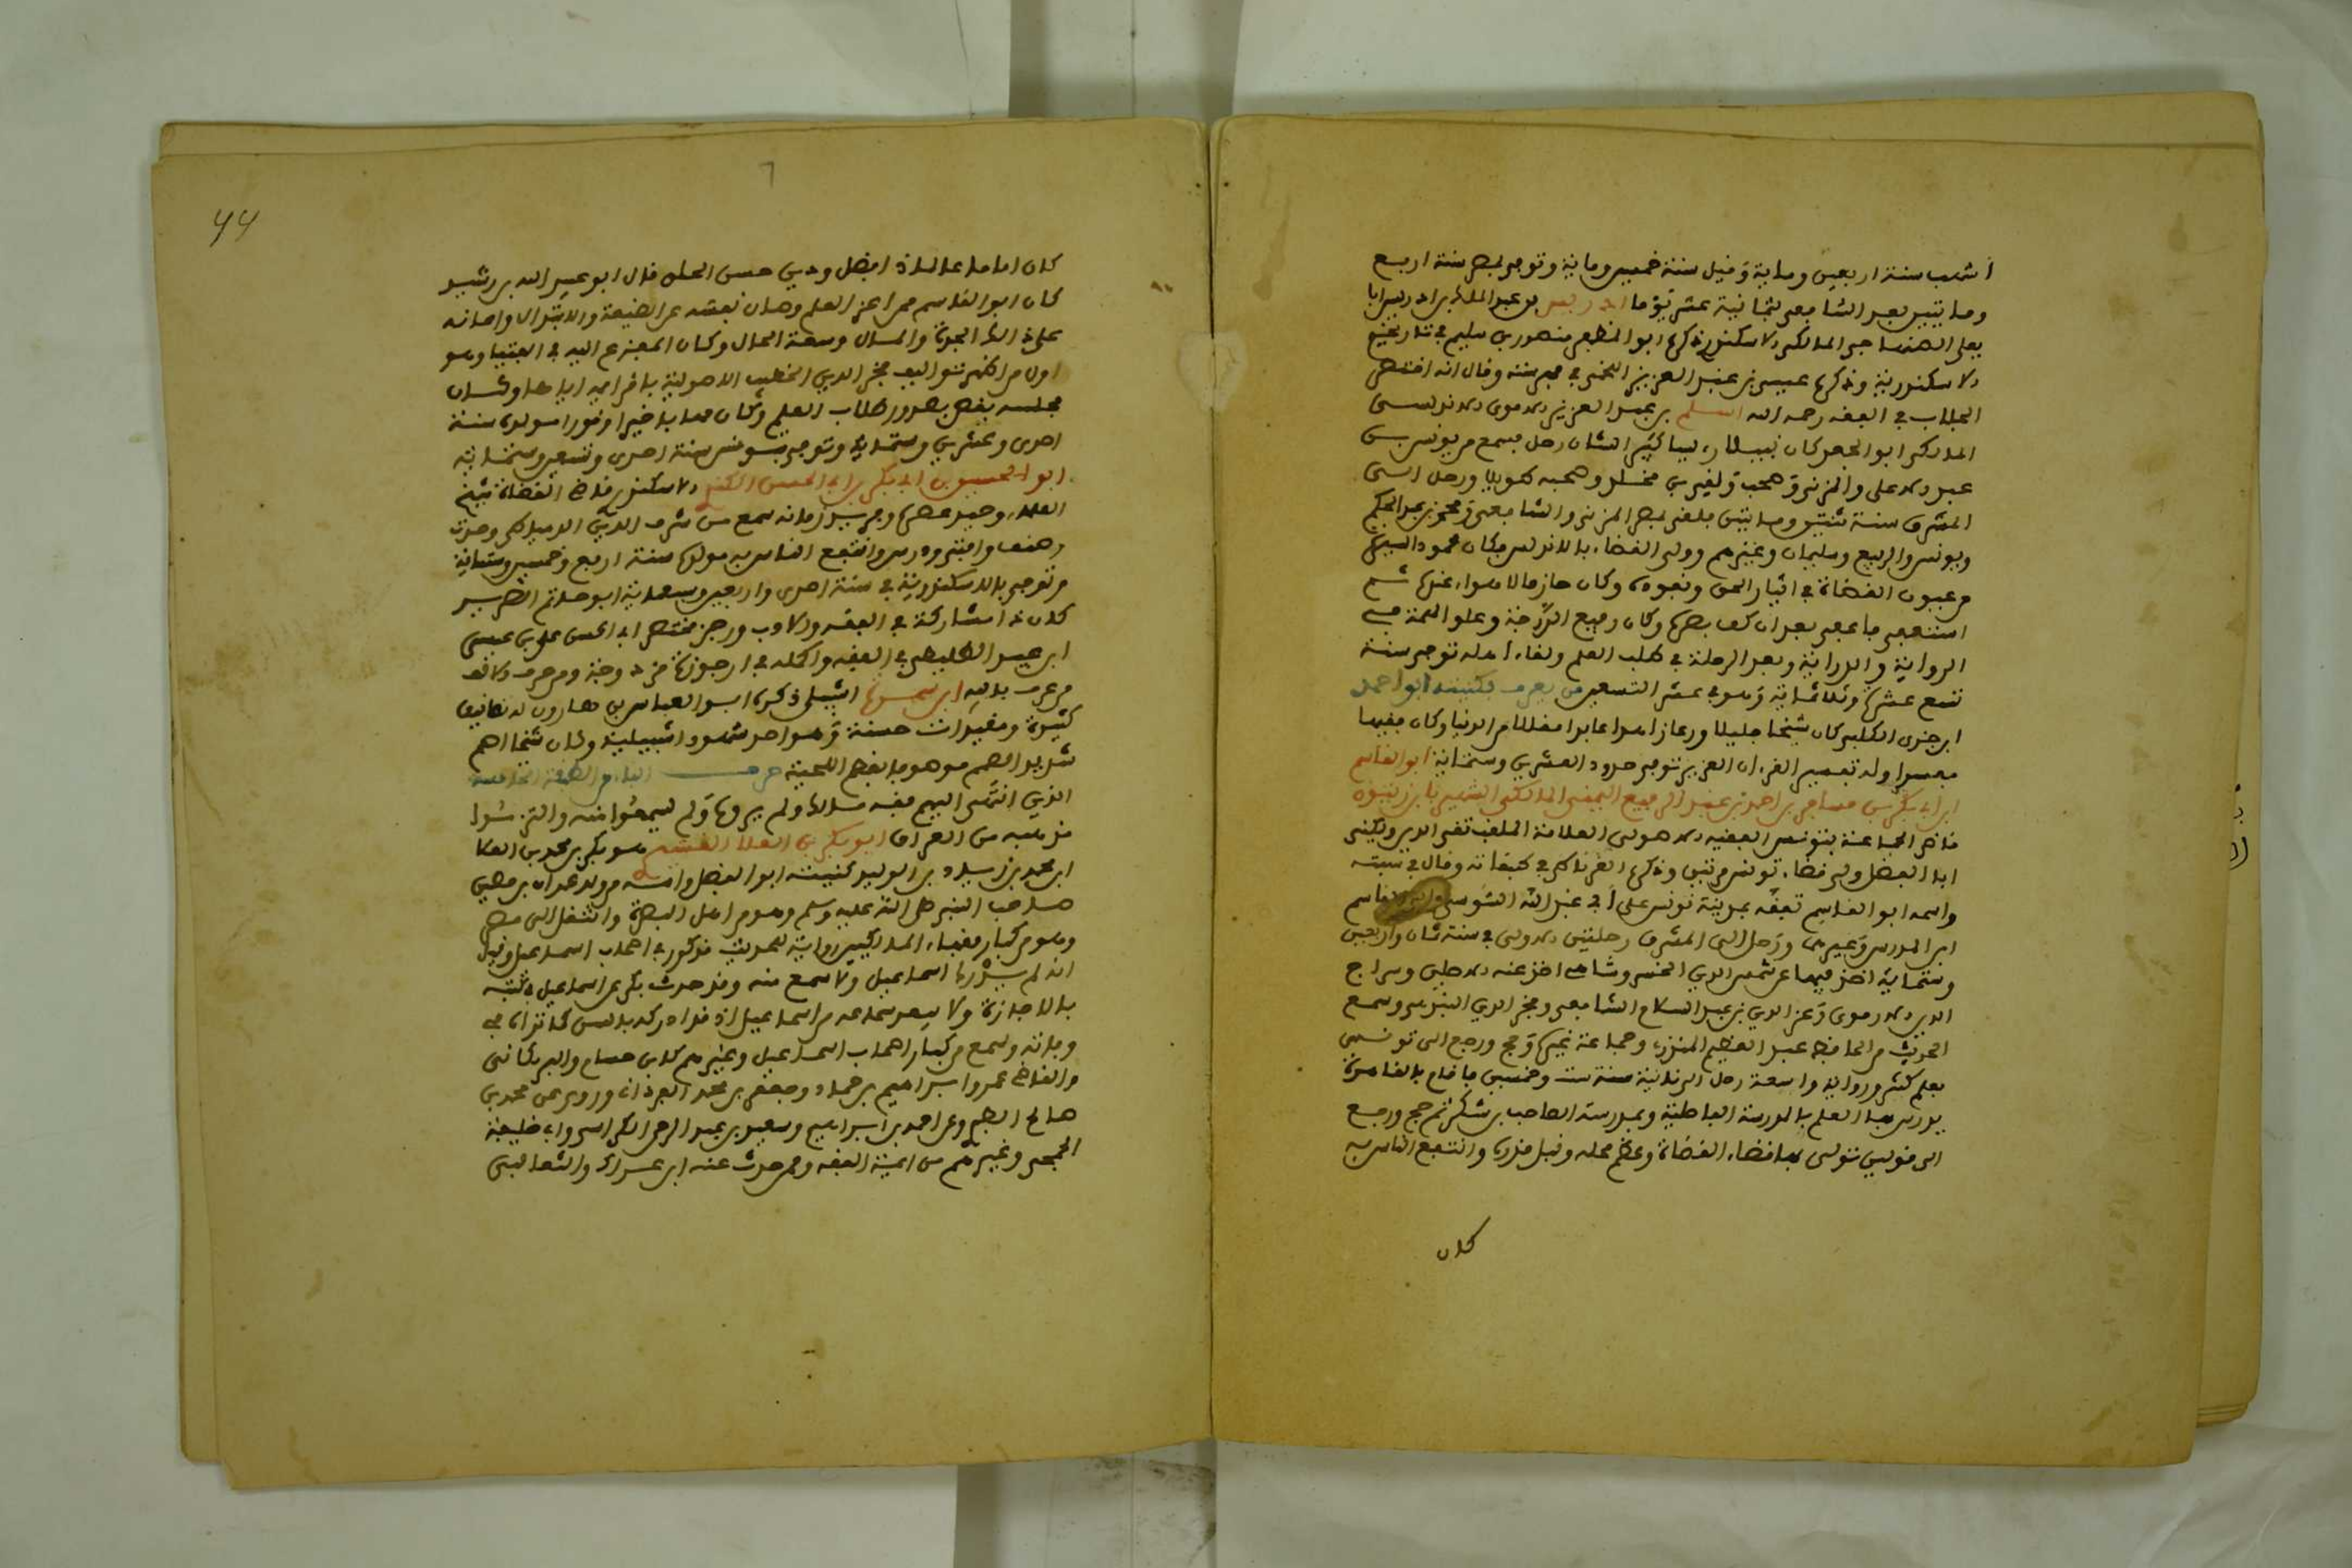 أشهب سنة اربعين وماية وقيل سنة خمسين وماية وتوفى بمصر سنة اربع
ومايتين بعد الشافعي بثمانية عشر يوما ادريس بن عبد الملك بن ادريس ابا
يعلى الصنهاجي المالكي الاسكندري ذكره ابو المظفر منصور بن سليم في تاريخ
الاسكندرية وذكره عيسى بن عبد العزيز اللخمي في وقال انه اختصر
الجلاب في الفقه رحمه الله اسلم بن عبد العزيز الاموي الاندلسي
المالكي ابو الجعد كان نبيلا رئيسا كبير الشان رحل فسمع من يونس بن
عبد الاعلى والمزني وصحب بقي بن مخلد وصحبه طويلا ورحل الى
المشرق سنة ستين ومايتين فلقى بمصر المزني والشافعي ومحمد بن عبد الحكم
ويونس والربيع وسليمان وغيرهم وولى القضاء بالاندلس وكان محمود السيرة
من عيون القضاة في ايثار الحق ونفوذه وكان حازما لا هوادة عنده ثم
استعفى فاعفي بعد ان كف بصره وكان رفيع الدرجة وعلو الهمة في
الرواية والدراية وبعد الرحلة في طلب العلم ولقاء أهله توفى سنة
تسع عشرة وثلاثماية وهو في عشر التسعين من يعرف بكنيته ابو احمد
ابن جزي الكلبي كان شيخا جليلا ورعا زاهدا عابدا متقللا من الدنيا وكان فقيها
مفسرا وله تفسير القرءان العزيز توفى حدود العشرين وستماية ابو القاسم
ابن ابى بكر بن مسافر بن احمد بن عبد الرفيع اليمني المالكي الشهير بابن زيتون
قاضي الجماعة بتونس الفقيه الاصولي العلامة الملقب تقي الدين ويكنى
ابا الفضل ولى قضاء تونس مرتين وذكره الغرناطي في طبقاته وقال في نسبه
واسمه ابو القاسم تفقه بمدينة تونس على أبي عبد الله السوسي والقاسم
ابن البراء وغيرهما ورحل الى المشرق رحلتين الاولى في سنة ثمان واربعين
وستماية اخذ فيها عن شمس الدين الخسروشاهي اخذ عنه الاصلين وسراج
الدين الارموي وعز الدين بن عبد السلام الشافعي وفخر الدين البندهي وسمع
الحديث من الحافظ عبد العظيم المنذري وجماعة غيره وحج ورجع الى تونس
بعلم كثير ورواية واسعة رحل الرحلة الثانية سنة ست وخمسين فاقام بالقاهرة
يدرس بها العلم بالمدرسة الفاضلية وبمدرسة الصاحب بن شكر ثم حج ورجع
الى تونس فتولى بها قضاء القضاة وعظم محله ونبل قدره وانتفع الناس به
كان
44
كان اماما عالما ذا فضل ودين حسن الخلق قال ابو عبد الله بن رشيد
كان ابو القاسم ممن اعز العلم وصان نفسه عن الضيعة والابتذال واعانه
على ذلك الجدة والمال وسعة الحال وكان المفزع اليه في الفتيا وهو
اول من اظهر تواليف فخر الدين ابن الخطيب الاصولية باقرايه اياها وكان
مجلسه يغص بصدور طلاب العلم وكان مهابا خيرا وقورا مولده سنة
احدى وعشرين وستماية وتوفى بتونس سنة احدى وتسعين وستماية
ابو الحسين بن ابي بكر بن ابي الحسن الكندي الاسكندري قاضي القضاة شيخ
العلماء وحيد عصره وفريد زمانه سمع من شرف الدين الدمياطي وحدث
وصنف وافتى ودرس وانتفع الناس به مولده سنة اربع وخمسين وستماية
وتوفى بالاسكندرية في سنة احدى واربعين وسبعماية ابو حاتم الضرير
كان له مشاركة في الفقه والادب ورجز مختصر ابي الحسن علي بن عيسى
ابن عبيد الطليطلي في الفقه واكمله في ارجوزة مزدوجة ومن حرف الالف
من عرف بابيه ابن سمحون اشبيلي ذكره ابو العباس بن هارون له تصانيف
كثيرة ومقيدات حسنة وهو احد شهود اشبيلية وكان شيخا اصم
شديد الصمم موصوفا بعظم اللحية حرف الباء من الطبقة الخامسة
الذين انتهى اليهم فقه مالك ولم يروه ولم يسمعوا منه والتزموا
مذهبه من العراق ابو بكر بن العلا القشيري هو بكر بن محمد بن العلا
ابن محمد بن زياد بن الوليد كنيته ابو الفضل وامه من ولد عمران بن حصين
صاحب النبي صلى الله عليه وسلم وهو من اهل البصرة وانتقل الى مصر
وهو من كبار فقهاء المالكيين رواية للحديث مذكور في اصحاب اسماعيل وقيل
انه لم يدرك اسماعيل ولا سمع منه وقد حدث بكر عن اسماعيل في كتبه
بالاجازة ولا يبعد سماعه من اسماعيل اذ قد ادركه بالسن كما تراه في
وفاته وسمع من كبار اصحاب اسماعيل وغيرهم كابن خشنام والبرنكاني
والقاضي عمر وابراهيم بن حماد وجعفر بن محمد الفريابي وروى عن محمد بن
صالح الطبري وعن احمد بن ابراهيم وسعيد بن عبد الرحمن الكرابيسي وابي خليفة
الجمحي وغيرهم من ايمة الفقه وممن حدث عنه ابن عراك والنعالي